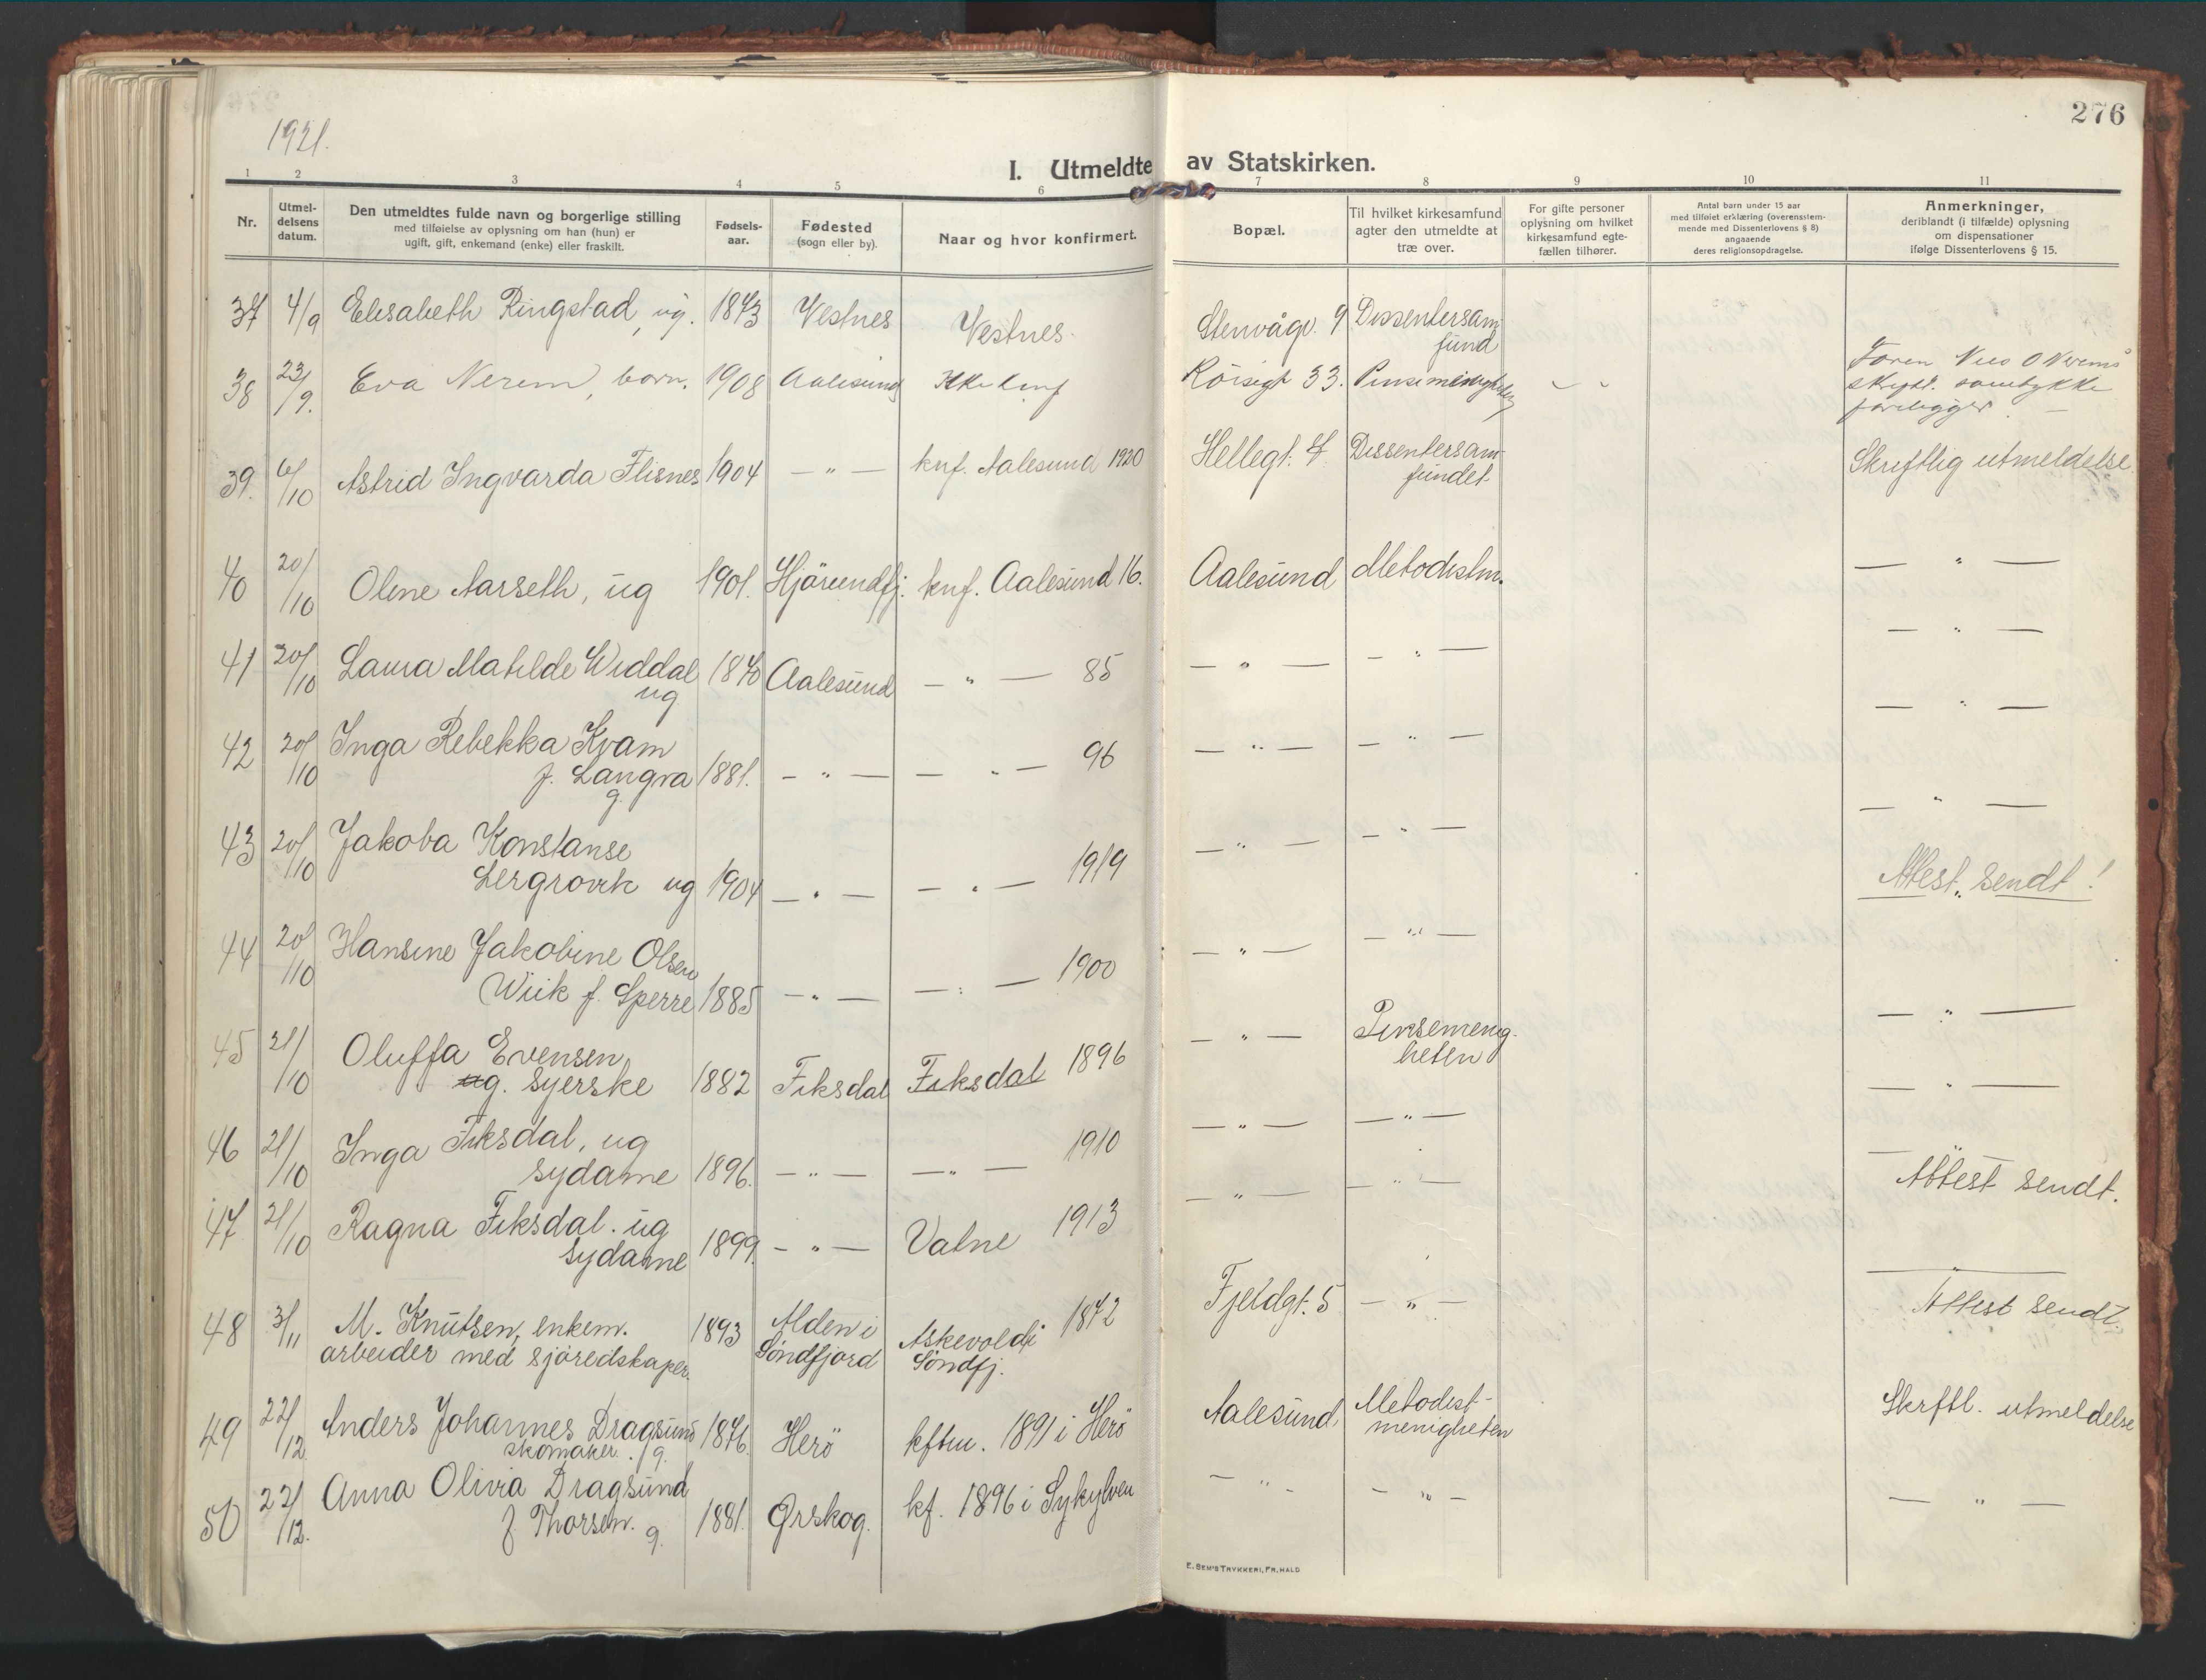 276
1921.
I. Utmeldte av Statskirken.
1 2 3 4 5 6 7 8 9 10 11
Nr.
Utmel-
delsens
datum.
Den utmeldtes fulde navn og borgerlige stilling
med tilføielse av oplysning om han (hun) er
ugift, gift, enkemand (enke) eller fraskilt.
Fødsels-
aar.
Fødested
(sogn eller by).
Naar og hvor konfirmert.
Bopæl.
Til hvilket kirkesamfund
agter den utmeldte at
træ over.
For gifte personer
oplysning om hvilket
kirkesamfund egte-
fællen tilhører.
Antal barn under 15 aar
med tilføiet erklæring (overensstem-
mende med Dissenterlovens § 8)
angaaende
deres religionsopdragelse.
Anmerkninger,
deriblandt (i tilfælde) oplysning
om dispensationer
ifølge Dissenterlovens § 15.
37 4/9 Elisabeth Ringstad, ug. 1873 Vestnes Vestnes. Stenvågv. 9 Dissentersam
fund
38 23/9. Eva Nerem, barn. 1908 Aalesund Ikke konf Röisegt 33. Pinsemenigheten - -
Faren O Nerems
skriftl. samtykke
foreligger. —
39. 6/10 Astrid Ingvarda Flisnes 1904 — " — knf. Aalesund 1920 Hellegt. 7 Dissentersam-
fundet
Skriftlig utmeldelse.
40 20/10 Oline Aarseth, ug 1901. Hjörundfj. knf. Aalesund 16. Aalesund Metodistm. — " —
41 20/10 Laura Matilde Widdal 1870 Aalesund — " — 85 — " — — " — — " —
ug
42 20/10 Inga Rebekka Kvam
f. Langva 1881. — " — — " — 96 — " — — " — — " —
g.
43 20/10 Jakoba Konstanse
Lergrovik ug 1904 — " — — " — 1919 — " — — " — — " —
44 20/10 Hansine Jakobine Olsen
Wiik f. Sperre 1885 — " — — " — 1900 — " — — " — — " —
Attest sendt!
45 21/10 Oluffa Evensen
ug. syerske 1882 Fiksdal Fiksdal 1896 — " — Pinsemenig-
heten — " —
46 21/10 Inga Fiksdal, ug
sydame 1896. — " — — " — 1910 — " — — " — — " —
47 21/10 Ragna Fiksdal. ug
sydame 1899. — " — Vatne 1913 — " — — " — — " —
Attest sendt.
48 3/11 M. Knutsen, enkem. 1893 Alden i Askevold i 1872 Fjeldgt. 5 — " — — " —
arbeider med sjöredskaper. Söndfjord Söndfj.
Attest sendt.
49 22/12 Anders Johannes Dragsund 1876. Herö kftm. 1891 i Herö Aalesund, Metodist-
skomaker. g. menigheten
Skrftl. utmeldelse
50 22/12. Anna Olivia Dragsund
f. Thorsen. g. 1881. Ørskog. kf. 1896 i Sykylven — " — — " — — " —
E. SEM'S TRYKKERI, FR. HALD